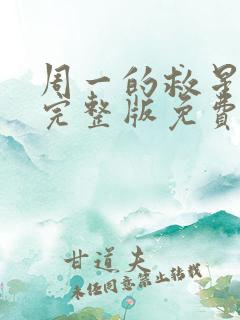 周一的救星
完整版免费
甘道夫
未经同意禁止转载